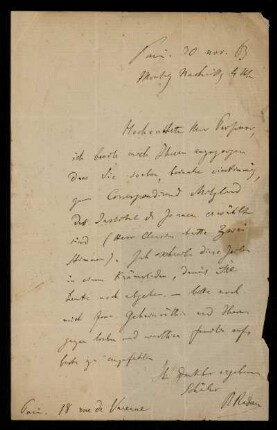 Paris. 30 nov. 63
Montag Nachmittg 4 Uhr
Hochverehrter Herr Professor,
ich beeile mich Ihnen anzuzeigen
dass Sie soeben, beinahe einstimmig,
zum Correspondirend. Mitglied
des Institut de France erwählt
sind (Herr Clausius hatte zwei
Stimmen). Ich schreibe diese Zeilen
in einem Krämerladen, damit Sie
heute noch abgehen — bitte noch
mich Frau Geheimräthin und Ihnen
gegen beide und
beste zu empfehlen
Ihr dankbar ergebener
Schüler
R. Radau
Paris. 18 rue de Varenne